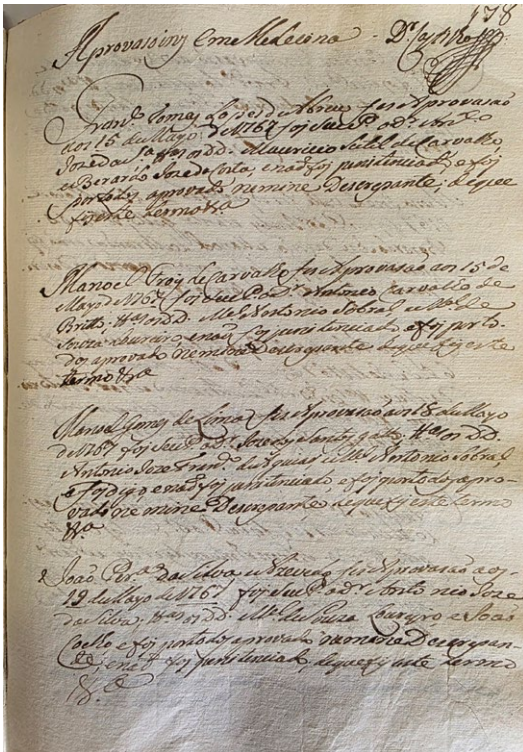 178
Aprovasoins em Medecina Dr. Castro
Franco. Gomes Lopes de Abreu fes Aprovasaõ
aos 15 de Mayo de 1767 foi seu P. o dr. Anto.
Joze da Sa. Has os DD. Mauricio de Carvalho,
e Berardo Joze da Costa, e naõ foi penitenciado, e foi
por todos aprovado nemine Descrepante; de que
fis este termo &a
Manoel Frz de Carvalho fes Aprovasaõ aos 15 de
Mayo de 1767 foi seu P. o dr. Antonio Carvalho de
Britto; Has os DD. Mel. Antonio Sobral, e Mel. de
Souza e naõ foi penitenciado e foi por to-
dos aprovado nemine Descrepante de que fis este
termo &a
Manoel Gomes de Lima fes Aprovasaõ aos 18 de Mayo
de 1767 foi seu P. o dr. Joze dos Santos Has os DD.
Antonio Joze Frano. de Aguiar, e Mel. Antonio Sobral,
e naõ foi penitenciado, e foi por todos apro-
vado nemine Descrepante de que fis este termo
&a
Joaõ Pera. da Silva e Azevedo fes Aprovasaõ aos
19 de Mayo de 1767 foi seu P. o dr. Antonio Joze
da Silva, Has os DD. Mel. de Souza e Joaõ
Coelho e foi por todos aprovado nemine Descrepan-
te, e naõ foi penitenciado, de que fis este termo
&a